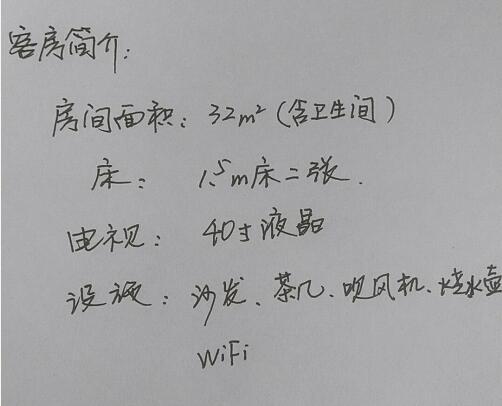 客房简介:
房间面积: 32m²(含卫生间)
床: 1.5m床二张.
电视: 40寸液晶
设施: 沙发、茶几、吹风机、烧水壶
WiFi